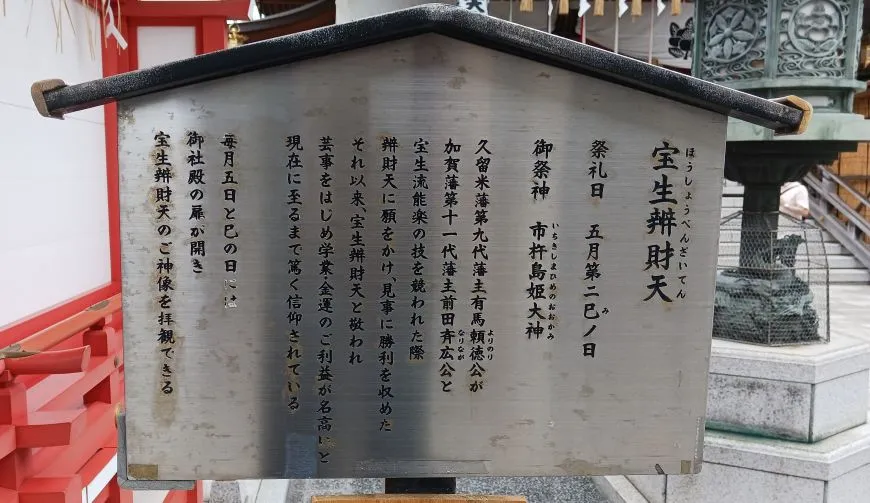 ほうしょうべんざいてん
宝生辨財天
祭礼日 五月第二巳ノ日
み
御祭神 市杵島姫大神
いちきしまひめのおおかみ
久留米藩第九代藩主有馬頼徳公が
よりのり
加賀藩第十一代藩主前田斉広公と
なりなが
宝生流能楽の技を競われた際
辨財天に願をかけ、見事に勝利を収めた
それ以来、宝生辨財天と敬われ
芸事をはじめ学業・金運のご利益が名高いと
現在に至るまで篤く信仰されている
毎月五日と巳の日には
御社殿の扉が開き
宝生辨財天のご神像を拝観できる